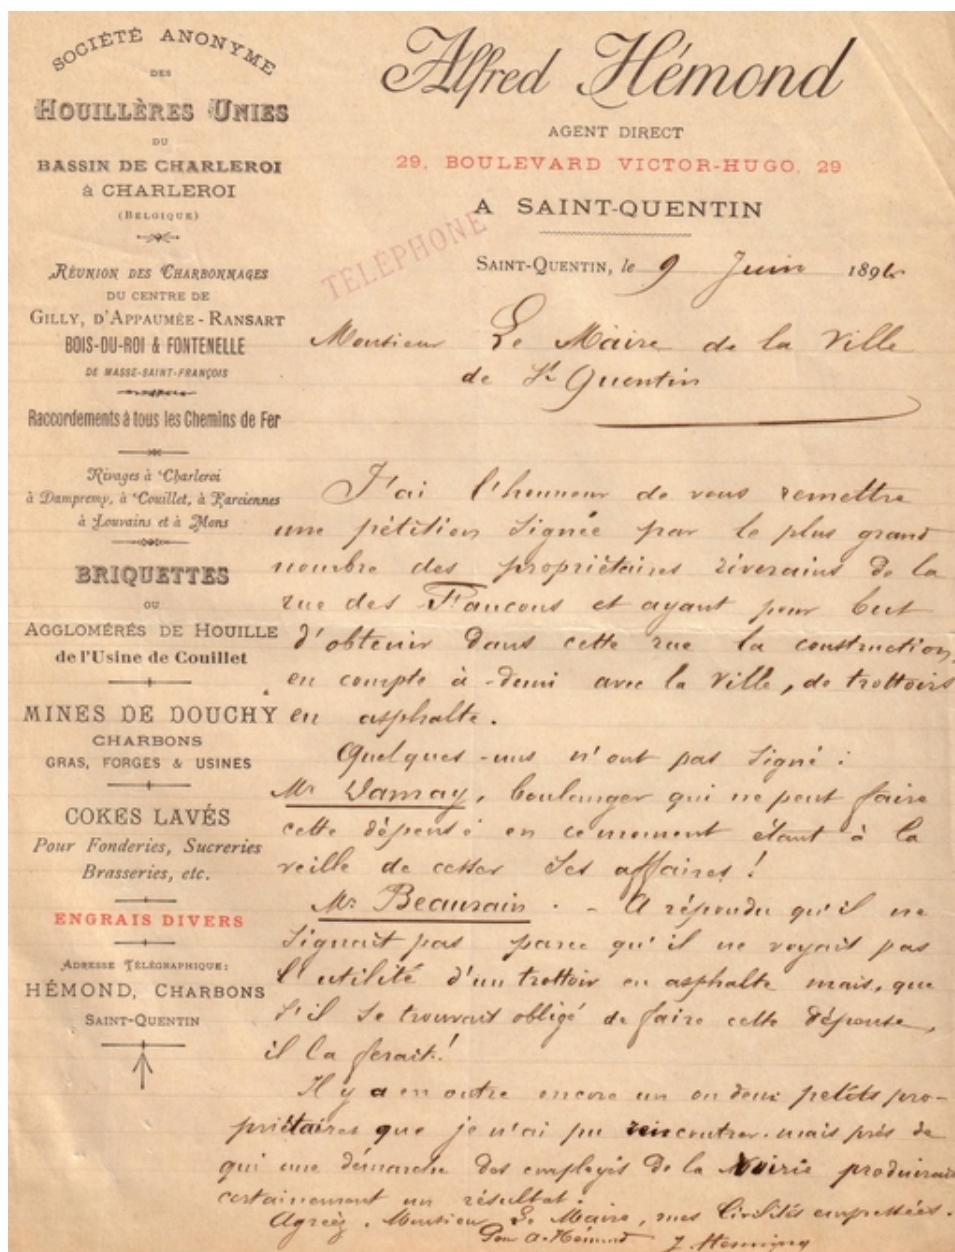 SOCIÉTÉ ANONYME
DES
HOUILLÈRES UNIES
DU
BASSIN DE CHARLEROI
à CHARLEROI
(BELGIQUE)
RÉUNION DES CHARBONNAGES
DU CENTRE DE
GILLY, D'APPAUMÉE-RANSART
BOIS-DU-ROI & FONTENELLE
DE MASSE-SAINT-FRANÇOIS
Raccordements à tous les Chemins de Fer
Rivages à Charleroi
à Dampremy, à Couillet, à Farciennes
à Louvains et à Mons
BRIQUETTES
OU
AGGLOMÉRÉS DE HOUILLE
de l'Usine de Couillet
MINES DE DOUCHY
CHARBONS
GRAS, FORGES & USINES
COKES LAVÉS
Pour Fonderies, Sucreries
Brasseries, etc.
ENGRAIS DIVERS
ADRESSE TÉLÉGRAPHIQUE:
HÉMOND, CHARBONS
SAINT-QUENTIN
Alfred Hémond
AGENT DIRECT
29, BOULEVARD VICTOR-HUGO, 29
A SAINT-QUENTIN
TELEPHONE
SAINT-QUENTIN, le 9 Juin
Monsieur Le Maire de la Ville
de St Quentin
J'ai l'honneur de vous remettre
une pétition signée par le plus grand
nombre des propriétaires riverains de la
rue des Faucons et ayant pour but
d'obtenir dans cette rue la construction,
en compte à-demi avec la Ville, de trottoirs
en asphalte.
Quelques-uns n'ont pas signé :
Mr Damay, boulanger qui ne peut faire
cette dépense en ce moment étant à la
veille de cesser ses affaires !
Mr Beaurain. - A répondu qu'il ne
signait pas parce qu'il ne voyait pas
l'utilité d'un trottoir en asphalte mais, que
s'il se trouvait obligé de faire cette dépense,
il la ferait !
Il y a en outre encore un ou deux petits pro-
priétaires que je n'ai pu rencontrer. mais près de
qui une démarche des employés de la Voirie produirait
certainement un résultat.
Agréez, Monsieur Le Maire, mes Civilités empressées.
Pour A. Hémond